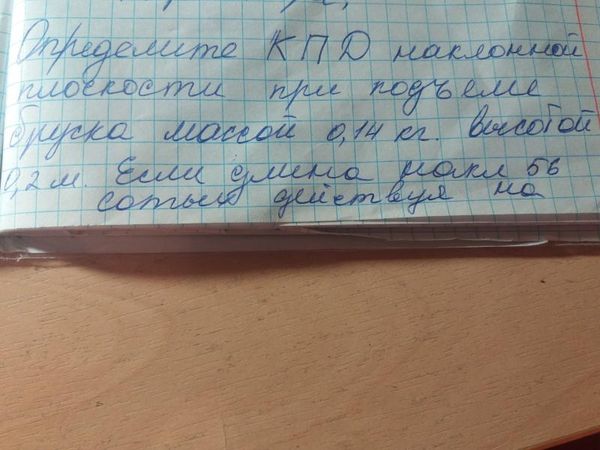 Определите КПД наклонной
плоскости при подъеме
бруска массой 0,14 кг. высотой
0,2 м. Если длина накл 56
сотых действуя на